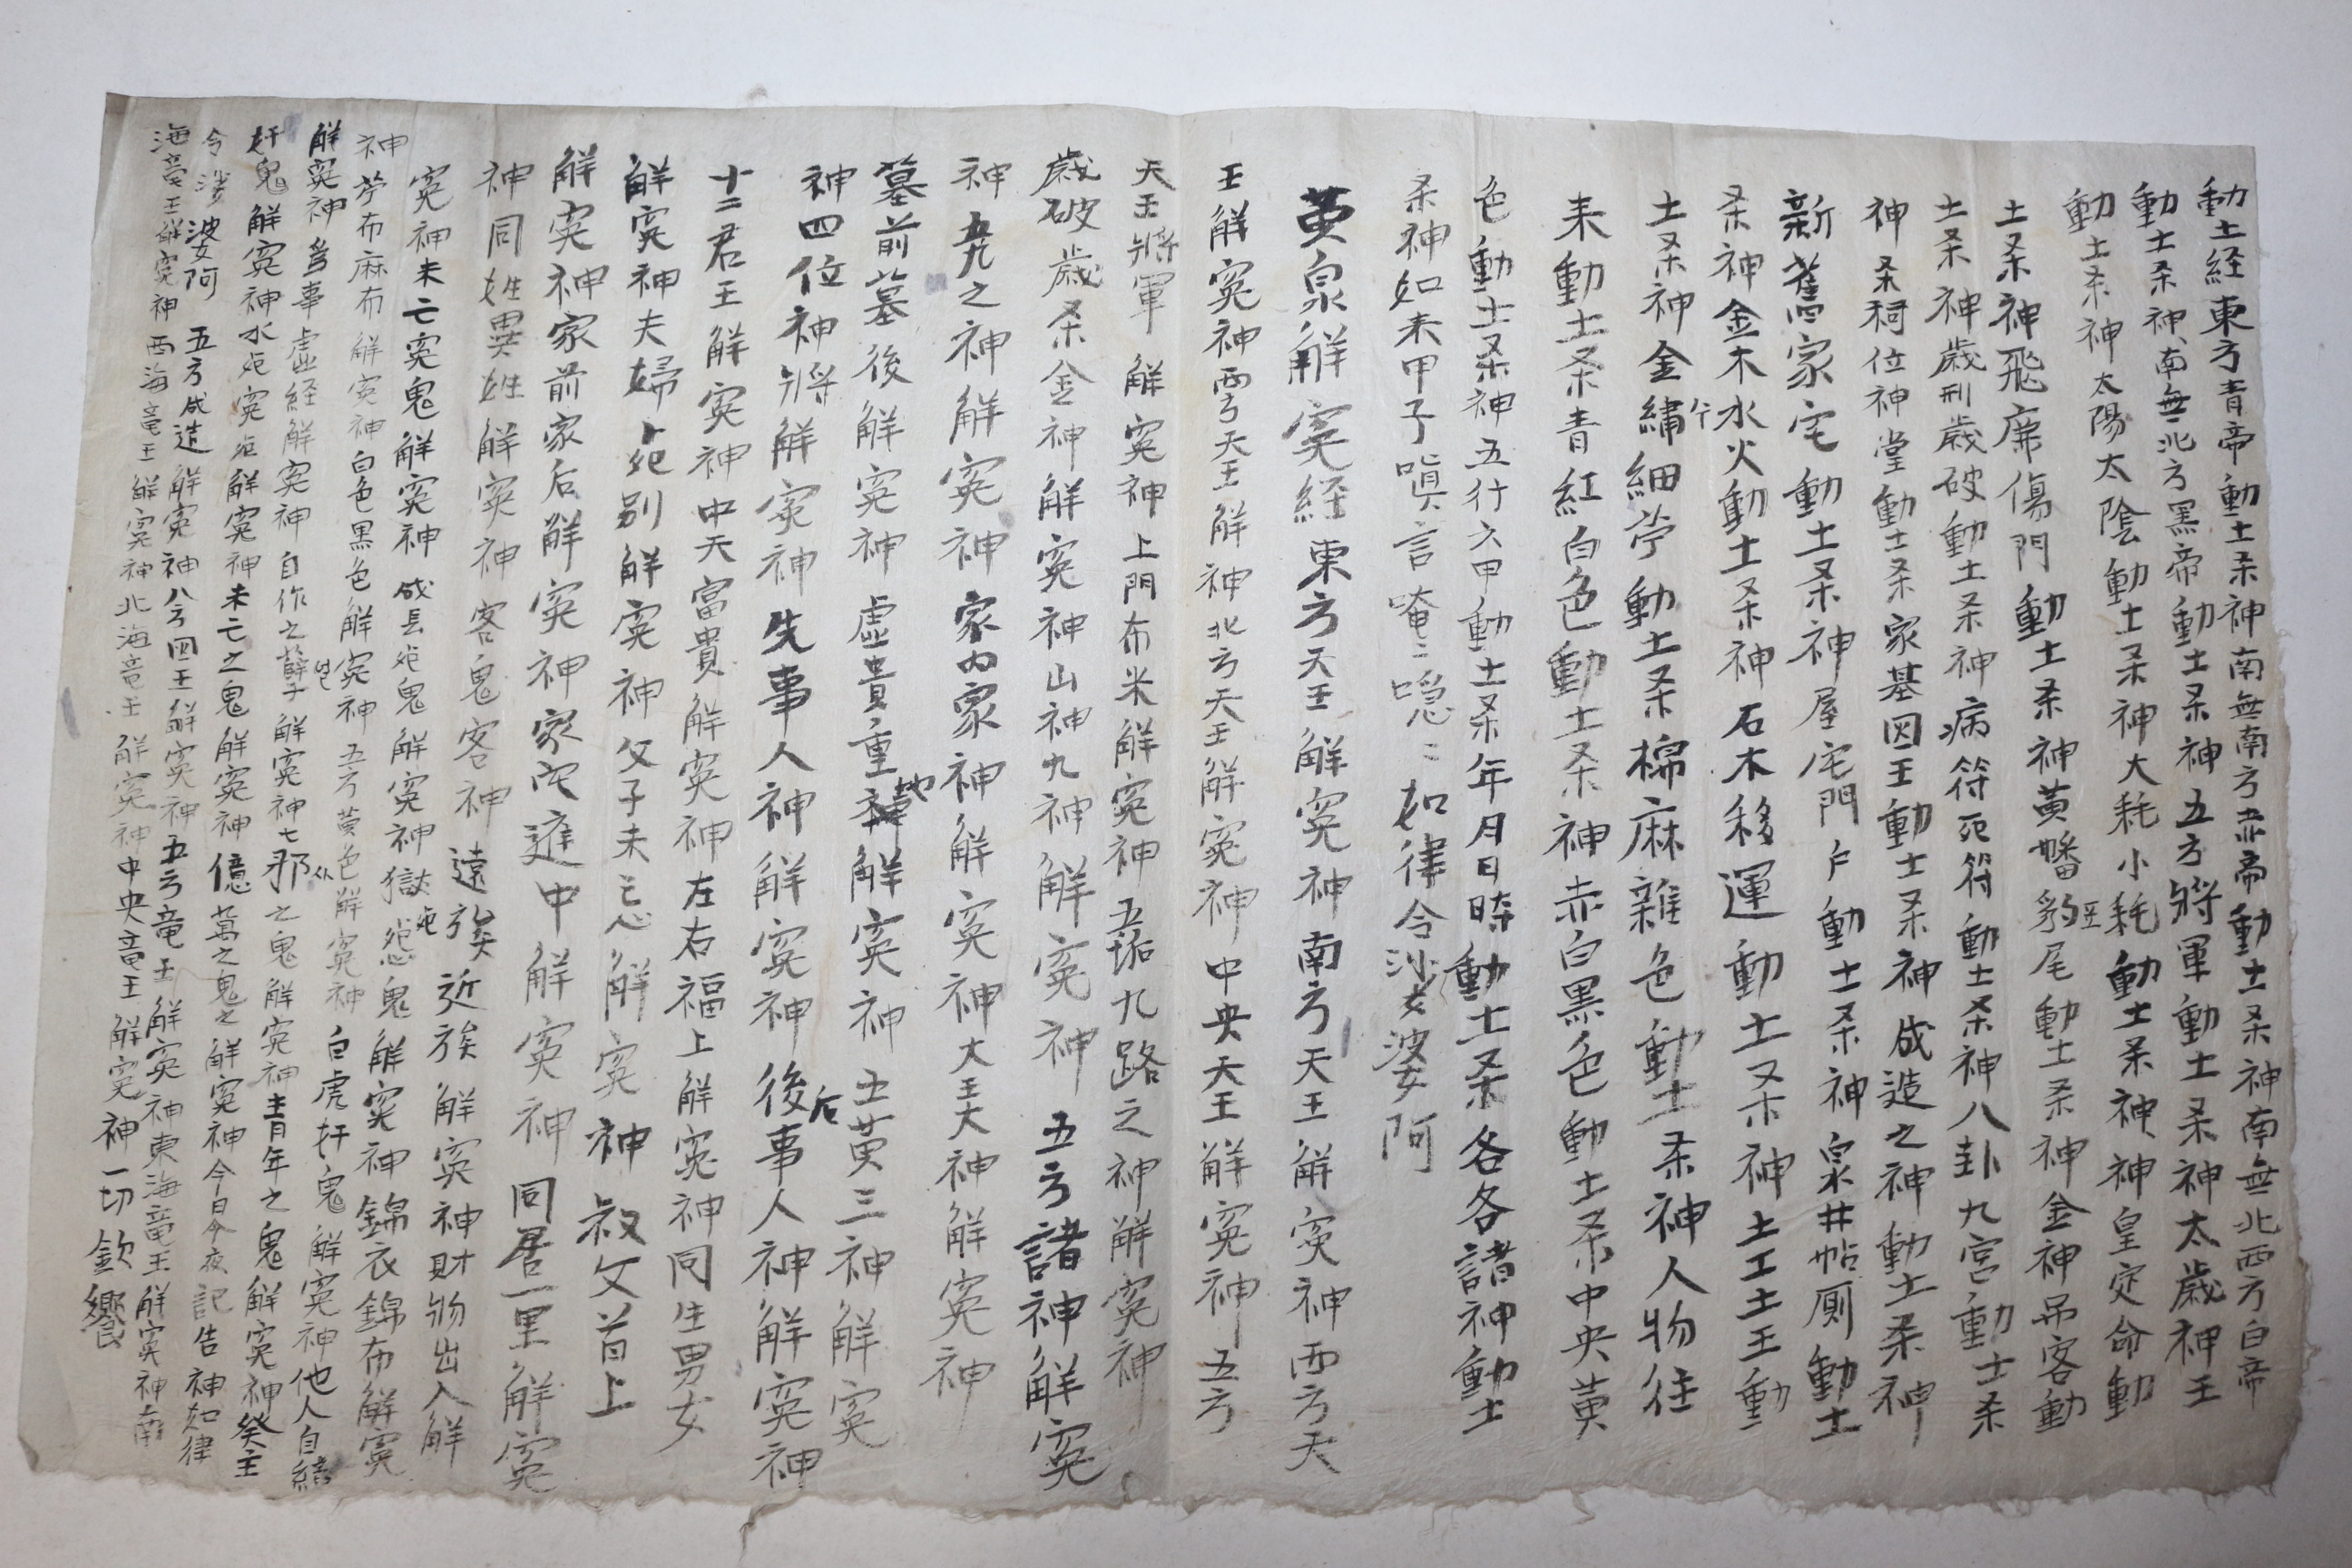 動土経東方青帝動土杀神南無南方赤帝動土杀神南無北西方白帝
動土杀神南無北方黑帝動土杀神五方將軍動土杀神太歲神王
動土杀神太陽太陰動土杀神大耗小耗動土杀神神皇定命動
土杀神飛廉傷門動土杀神黃幡豹尾動土杀神金神吊客動
土杀神歲刑歲破動土杀神病符死符動土杀神八卦九宮動土杀
神杀祠位神堂動土杀家基四王動土杀神成造之神動土杀神
新舊家宅動土杀神屋宅門戶動土杀神泉井厠動土
杀神金木水火動土杀神石木移運動土杀神土工土王動
土杀神金繡細苧動土杀棉麻雜色動土杀神人物往
来動土杀青紅白色動土杀神赤白黑色動土杀中央黃
色動土杀神五行六甲動土杀年月日時動土杀各各諸神動土
杀神如来甲子嗔言唵〻唵〻如律令沙婆阿
黃泉解寃経東方天王解寃神南方天王解寃神西方天
王解寃神西方天王解神北方天王解寃神中央天王解寃神五方
天王將軍解寃神上門布米解寃神五垢九路之神解寃神
歲破歲杀金神解寃神山神九神解寃神五方諸神解寃
神九之神解寃神家內家神解寃神大王大神解寃神
墓前墓後解寃神虛貴重解寃神土黃三神解寃
神四位神將解寃神先事人神解寃神後后事人神解寃神
十二君王解寃神中天富貴解寃神左右福上解寃神同生男女
解寃神夫婦死別解寃神父子未忘解寃神叔父首上
解寃神家前家后解寃神家宅中解寃神同居一里解寃
神同姓異姓解寃神客鬼客神遠族近族解寃神財物出入解
寃神未亡寃鬼解寃神成長死鬼解寃神獄死怨鬼解寃神錦衣錦布解寃
神苧布麻布解寃神白色黑色解寃神五方黃色解寃神白虎奸鬼解寃神他人自結
解寃神爲事虛経解寃神自作之孽解寃神七邪之鬼解寃神靑年之鬼解寃神癸主
奸鬼解寃神水死寃死解寃神未亡之鬼解寃神億萬之鬼之解寃神今日今夜記告神如律
令沙婆阿 五方成造解寃神八方四王解寃神五方竜王解寃神東海竜王解寃神南
海竜王解寃神西海竜王解寃神北海竜王解寃神中央竜王解寃神一切欽饗